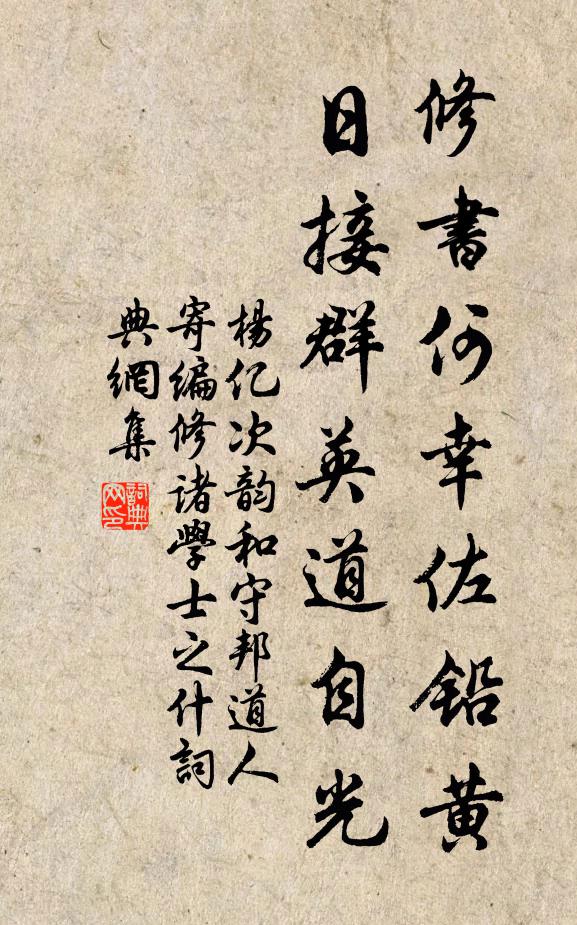 修書何幸佐鉛黃
日接群英道自光
楊亿次韵和守邦道人
寄編修諸學士之什詞
典網集
詞典网印